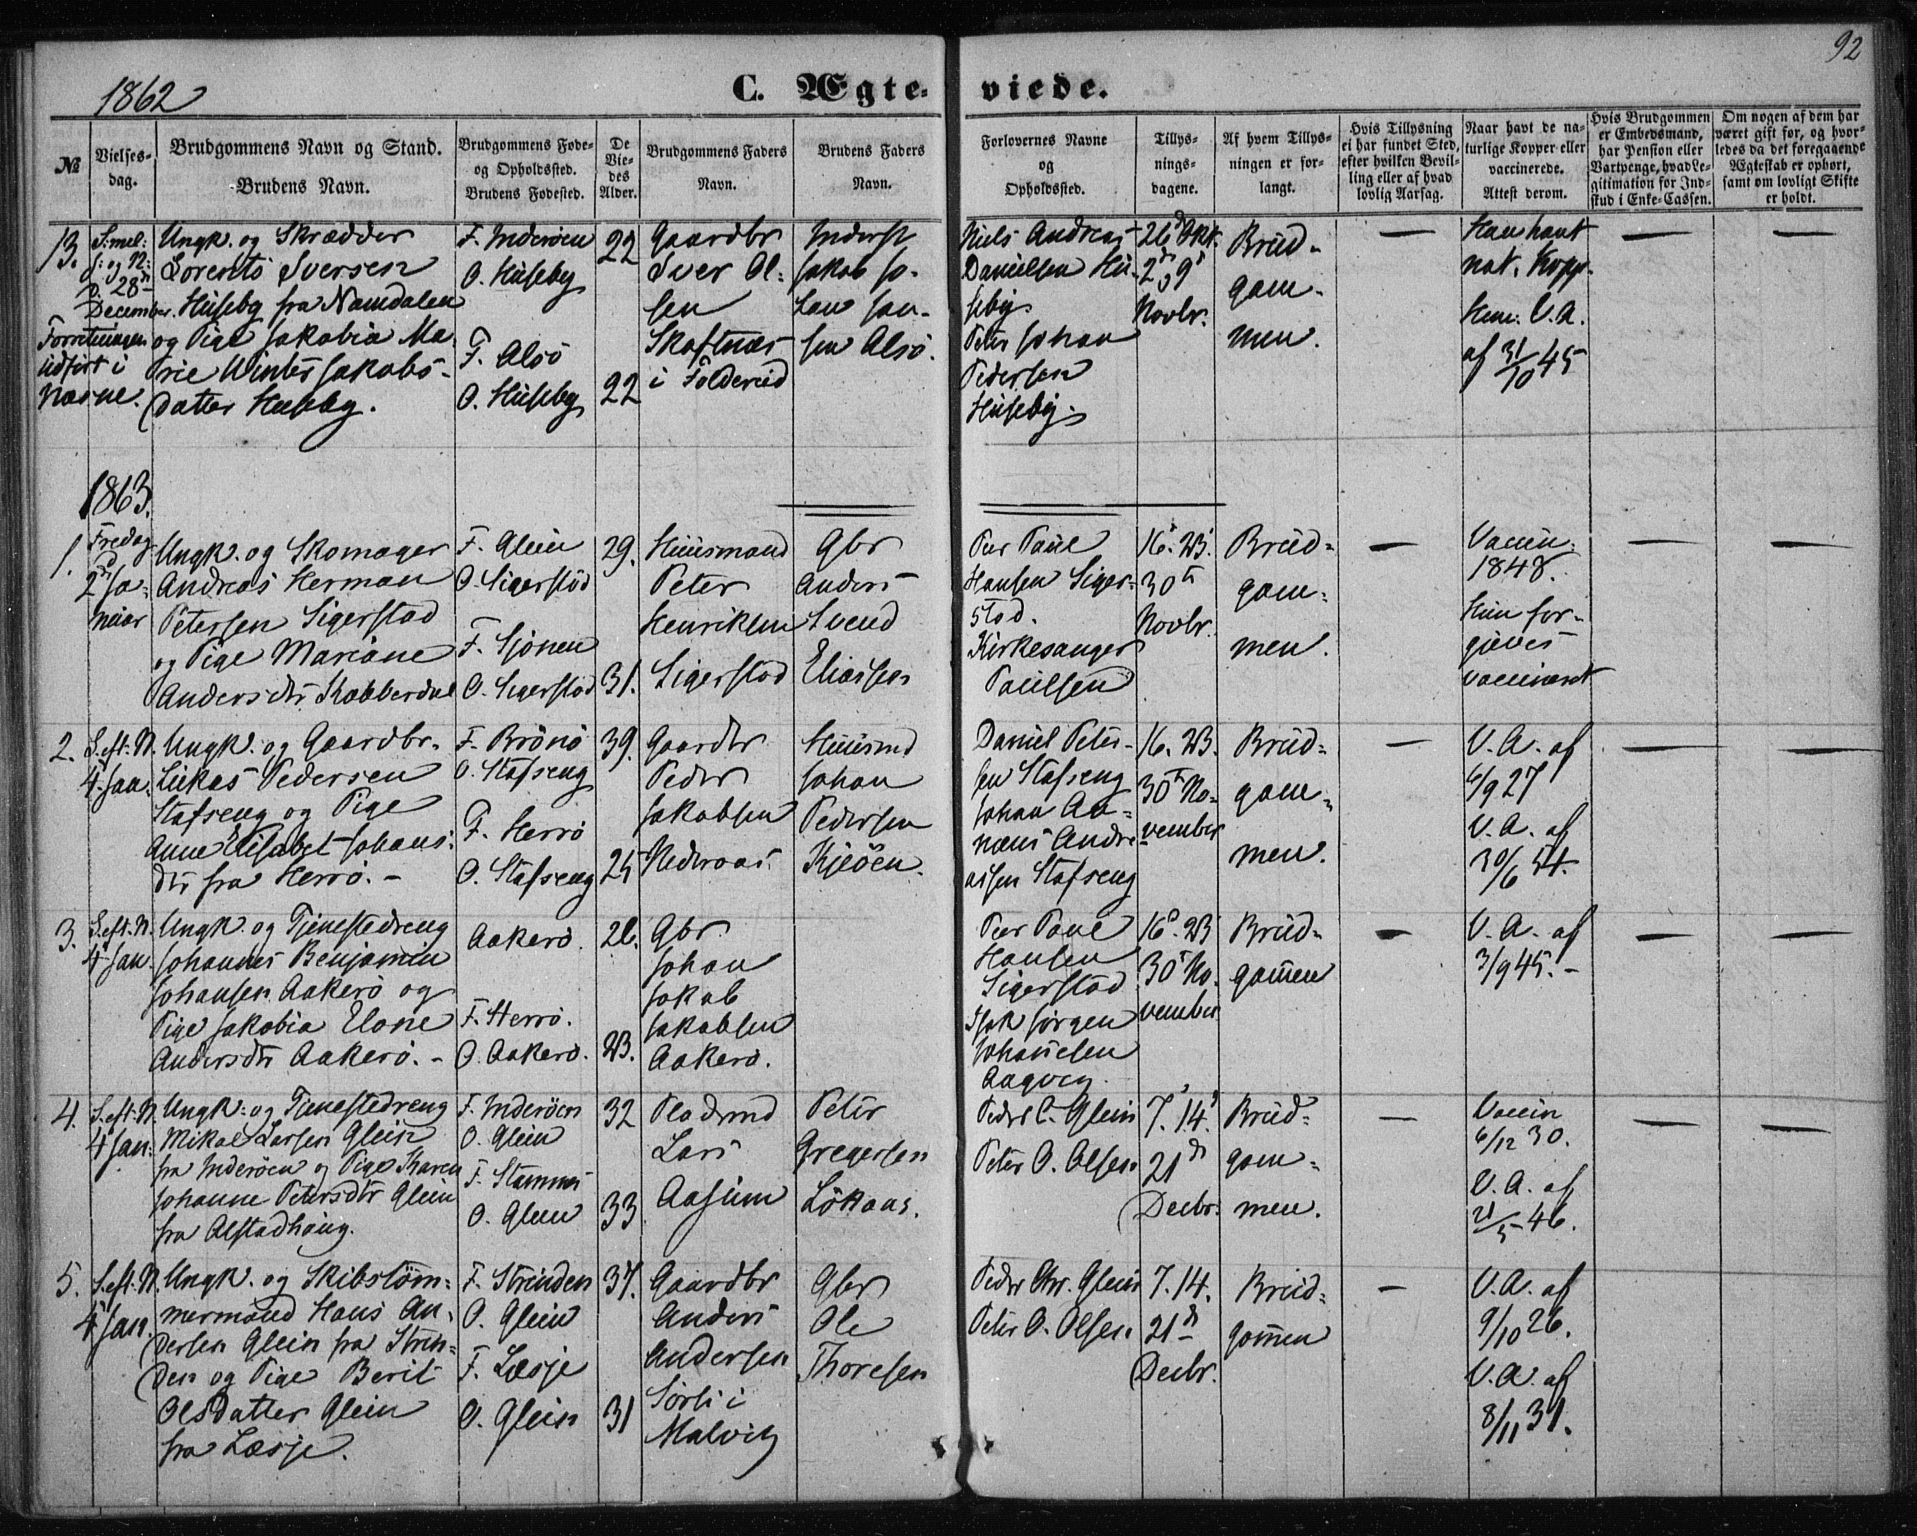 92
1862
C. Ægte- viede.
№
Vielses-
dag.
Brudgommens Navn og Stand.
Brudens Navn.
Brudgommens Føde-
og Opholdssted.
Brudens Fødested.
De
Vie-
des
Alder.
Brudgommens Faders
Navn.
Brudens Faders
Navn.
Forlovernes Navne
og
Opholdssted.
Tillys-
nings-
dagene.
Af hvem Tillys-
ningen er for-
langt.
Hvis Tillysning
ei har fundet Sted,
efter hvilken Bevil-
ling eller af hvad
lovlig Aarsag.
Naar havt de na-
turlige Kopper eller
vaccinerede.
Attest derom.
Hvis Brudgommen
er Embedsmand,
har Pension eller
Vartpenge, hvad Le-
gitimation for Ind-
skud i Enke-Cassen.
Om nogen af dem har
været gift før, og hvor-
ledes da det foregaaende
Ægteskab er ophørt,
samt om lovligt Skifte
er holdt.
13.
S: mel:
J: og N:
D. 28
December.
Forretningen
udført i
Næsne.
Ungk. og Skrædder
Lorents Iversen
Huseby fra Namdalen
og Pige Jakobia Ma-
rie Winter Jakobs-
datter Huseby.
F. Inderøen
O. Huseby
F. Alsö
O. Huseby
22
22
Gaardbr
Iver Ol-
sen
Skaftnæs
i Foldereid
Inderst
Jakob Jo-
han Jan-
sen Alsö.
Niels Andreas
Danielsen Hu-
seby.
Peter Johan
Pedersen
Huseby.
26 Okt.
2 9
Novbr.
Brud-
gom-
men.
Han havt
nat. Kopp.
Hun. V.A.
af 31/10 45
1863.
1.
Fredag
d
2 Ja-
nuar
Ungk. og Skomager
Andreas Herman
Petersen Sigerstad
og Pige Mariane
Andersdtr Kobberdal
F. Glein
O. Sigerstad
F. Sjonen
O. Sigerstad
29.
31.
Huusmand
Peter
Henriksen
Sigerstad
Gbr
Anders
Svend
Eliassen
Peer Paul
Hansen Siger-
stad.
Kirkesanger
Paulsen
16. 23.
30
Novbr.
Brud-
gom-
men.
Vaccin.
1848.
Hun for-
gjæves
vaccineret
2.
S. eft. N.
4 Jan.
Ungk. og Gaardbr.
Lukas Pedersen
Stafseng og Pige
Anne Elisabet Johans-
dtr fra Herrö. –
F. Brönö
O. Stafseng
F. Herrö
O. Stafseng
39.
25
Gaardbr
Peder
Jakobsen
Nederaas
Huusmd
Johan
Pedersen
Kjeöen.
Daniel Peter-
sen Stafseng
Johan An-
næus Andre-
assen Stafseng
16. 23.
30 No-
vember
Brud-
gom-
men.
V. A. af
6/9 27
V. A. af
30/6 54.
3.
S. eft. N.
4 Jan.
Ungk. og Tjenestedreng
Johannes Benjamin
Johansen Aakerö og
Pige Jakobia Elone
Andersdtr Aakerö. –
Aakerö.
F. Herrö.
O. Aakerö.
26.
23.
Gbr.
Johan
Jakob
Jakobsen
Aakerö.
Peer Paul
Hansen
Sigerstad
Isak Jörgen
Johansen
Aagvig.
16. 23
30 No-
vember
Brud-
gommen
V. A. af
3/9 45. –
4.
S. eft. N.
4 Jan.
Ungk. og Tjenestedreng
Mikal Larsen Glein
fra Inderøen og Pige Karen
Johanne Petersdtr Glein
fra Alstadhaug.
F. Inderøen
O. Glein
F. Stamnes
O. Glein
32
33
Pladsmd
Lars
Aasum
Peter
Gregersen
Lökaas.
Peder C. Glein
Peter O. Olsen
7. 14.
21
Decbr.
Brud-
gom-
men.
Vaccin
6/12 30.
V. A. af
21/5 46.
5.
S. eft. N.
4 Jan.
Ungk. og Skibstöm-
mermand Hans An-
dersen Glein fra Strin-
den og Pige Berit
Olsdatter Glein
fra Læsje.
F. Strinden
O. Glein
F. Læsje
O. Glein
37.
31
Gaardbr
Anders
Andersen
Sørli i
Malvig
Gbr
Ole
Thoresen
Peder Chr. Glein
Peter O. Olsen
7. 14.
21
Decbr.
Brud-
gommen
V. A. af
9/10 26.
V. A. af
8/11 31.